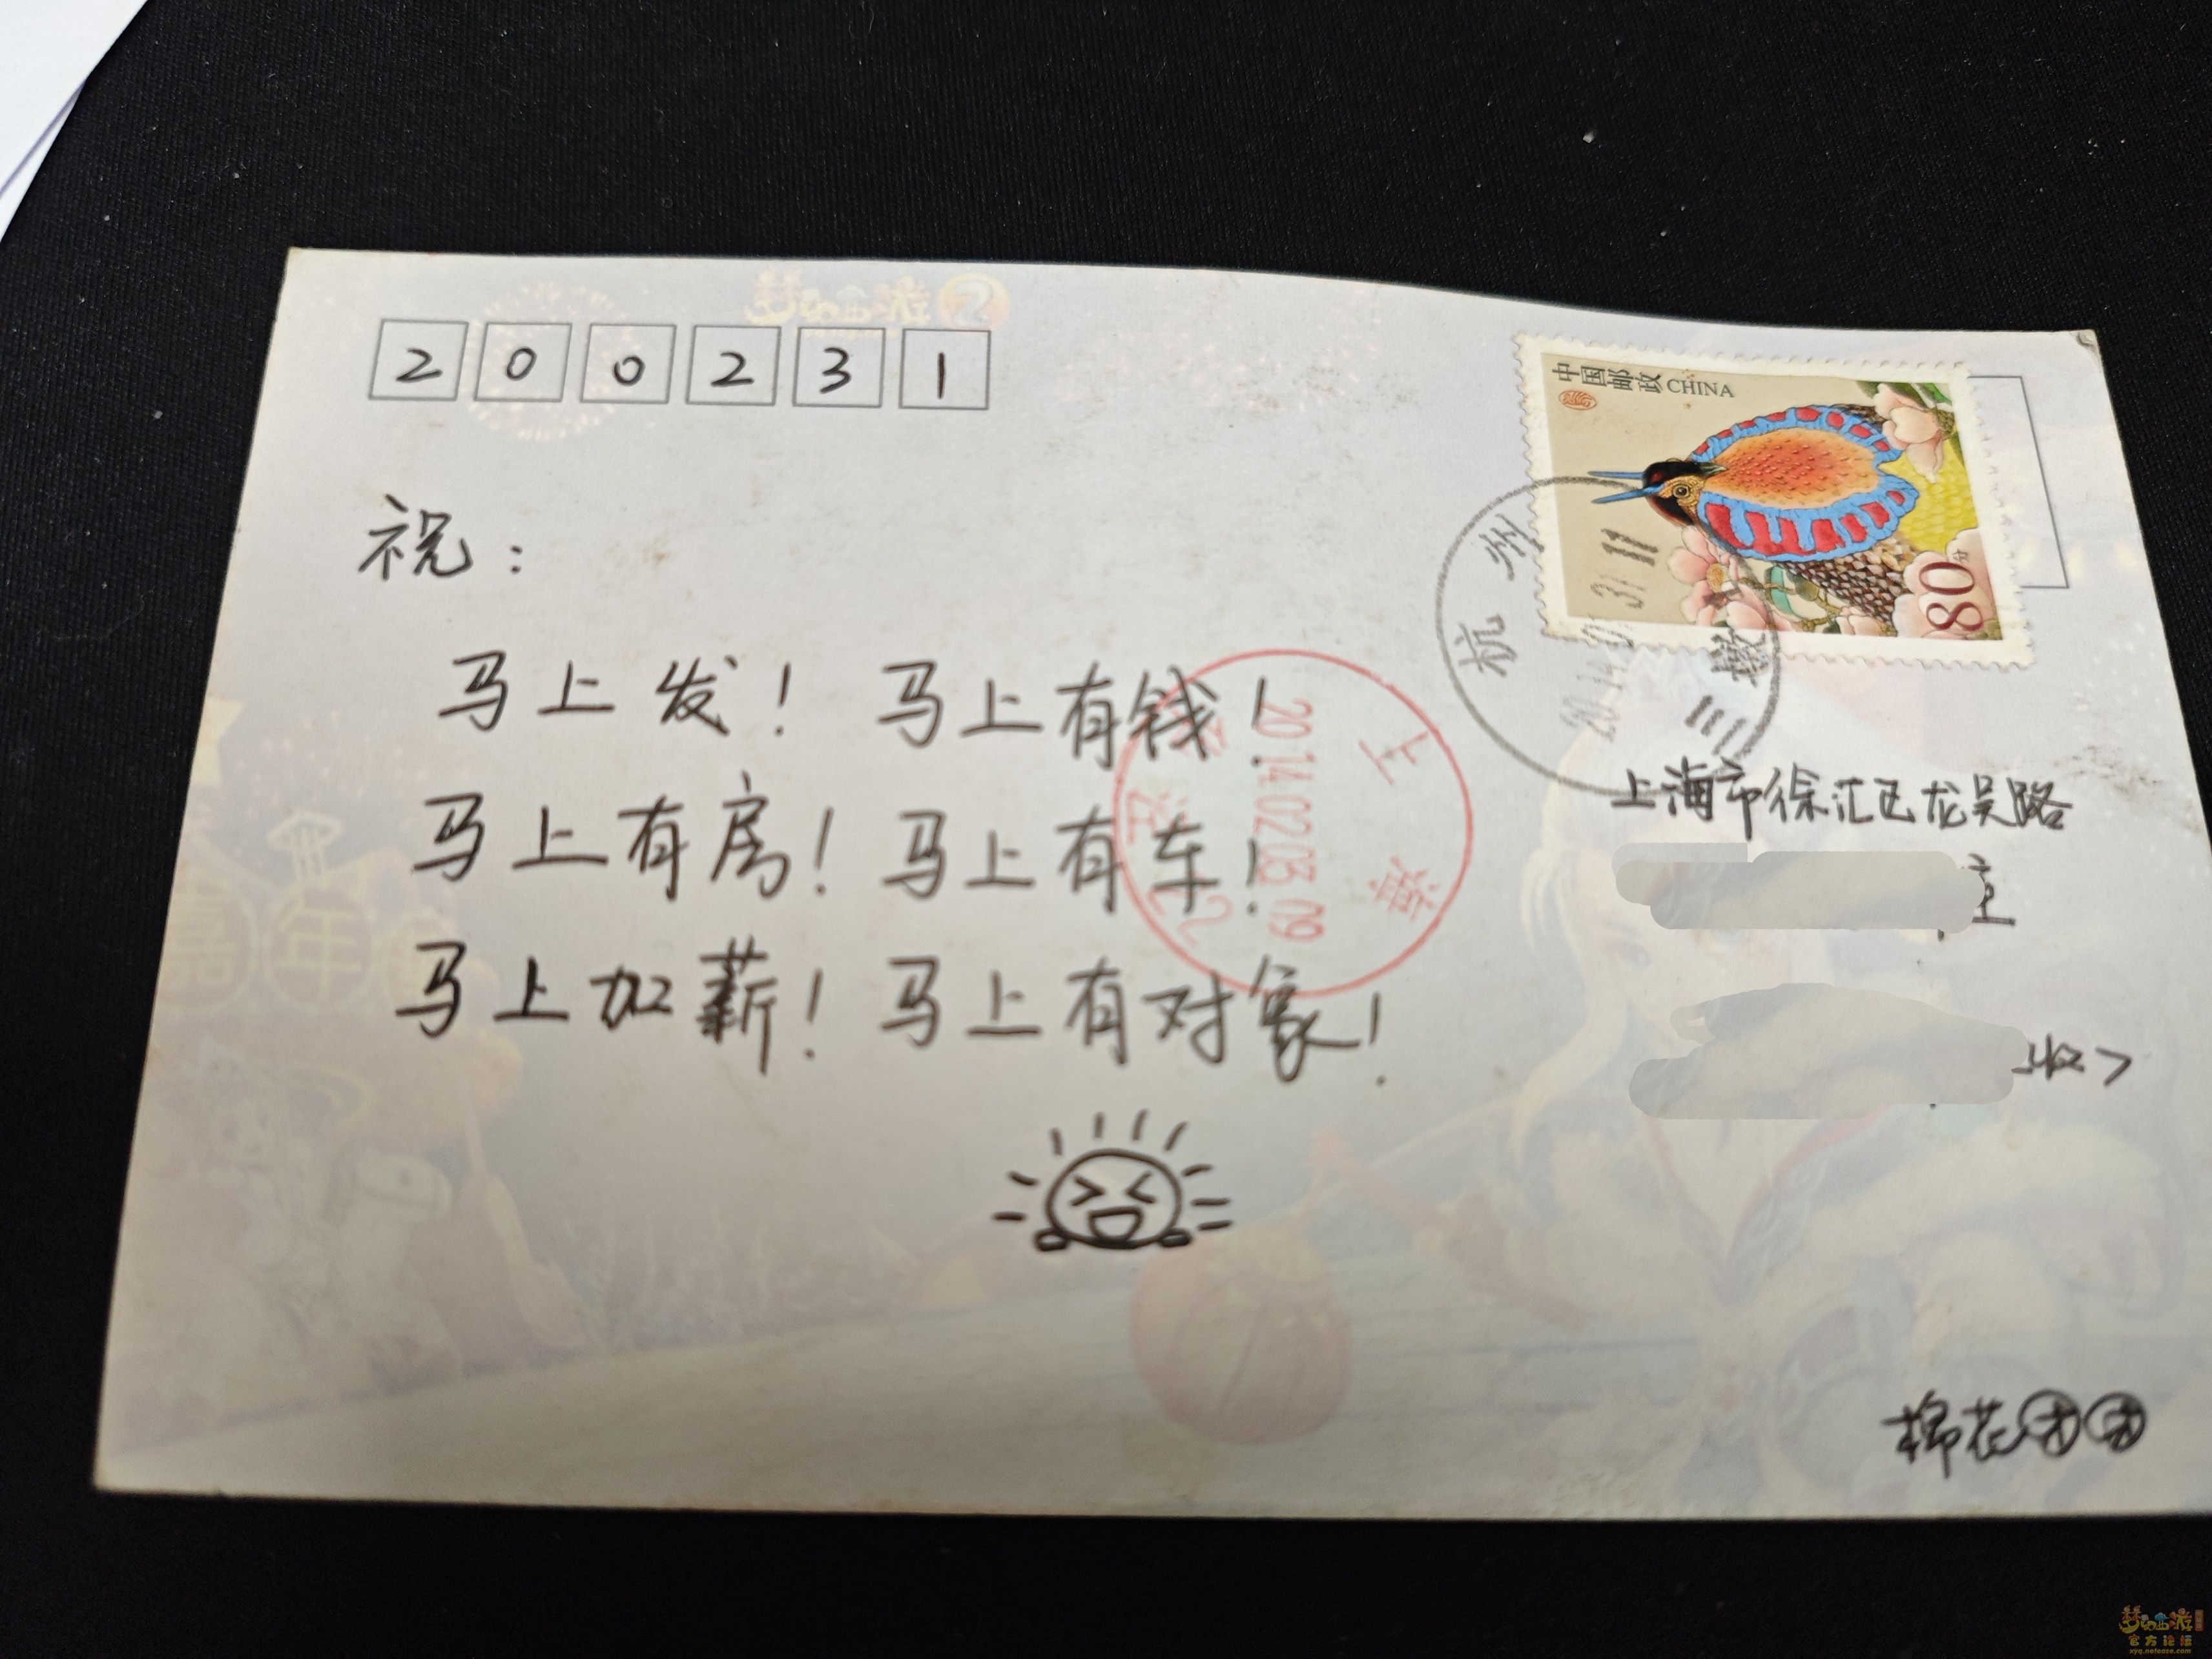 梦幻西游2
200231
中国邮政 CHINA
80分
杭州
三墩
祝：
马上发！ 马上有钱！
马上有房！ 马上有车！
马上加薪！ 马上有对象！
上海
2014.02.03.09
上海市徐汇区龙吴路
收>
棉花团团
梦幻西游
官方论坛
xyq.netease.com